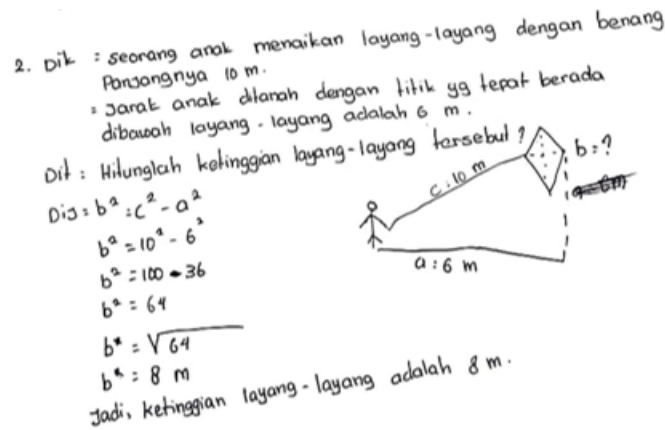 2. Dik : seorang anak menaikan layang-layang dengan benang
Panjangnya 10 m.
: Jarak anak ditanah dengan titik yg tepat berada
dibawah layang-layang adalah 6 m.
Dit : Hitunglah ketinggian layang-layang tersebut ?
Dij : b² : c² - a²
b² = 10² - 6²
b² = 100 - 36
b² = 64
b = √64
b = 8 m
Jadi, ketinggian layang-layang adalah 8 m.
c : 10 m
b : ?
a : 6 m